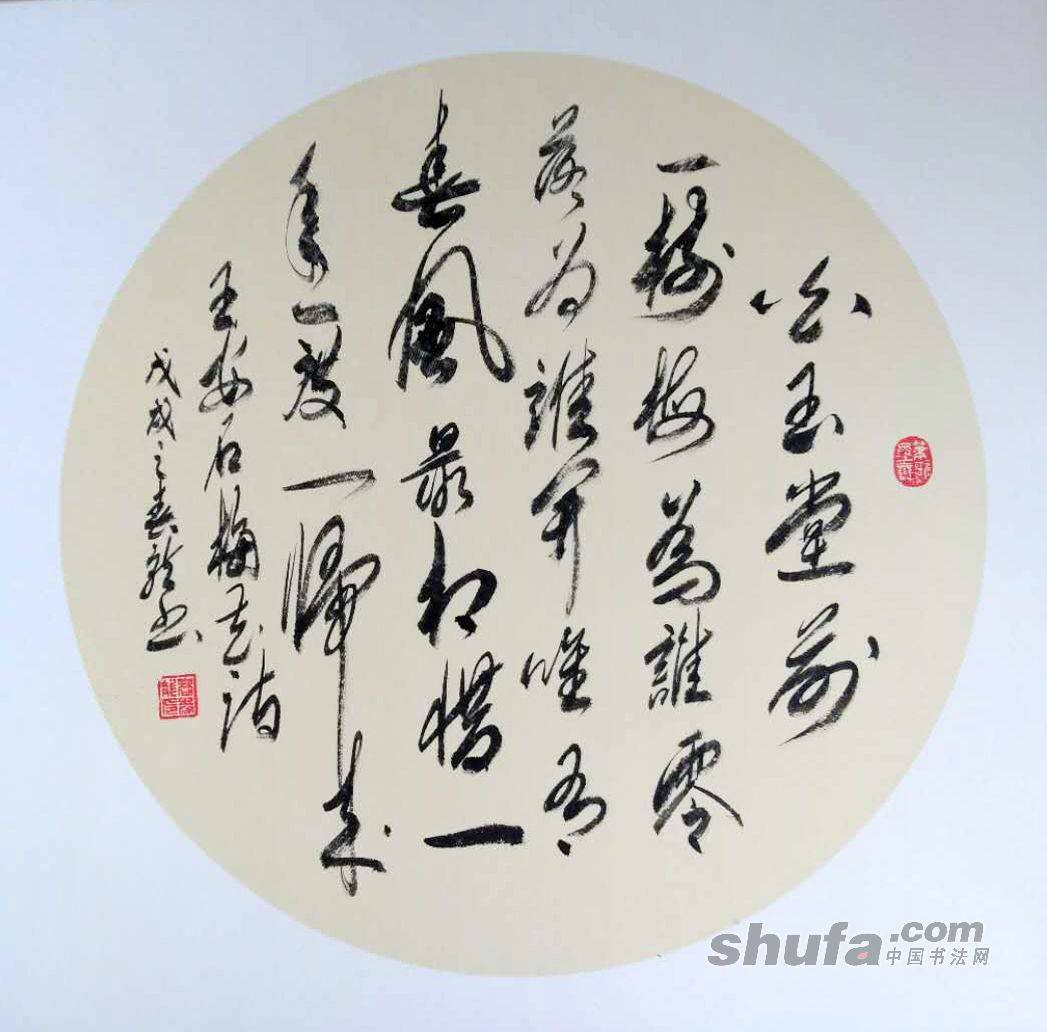 白玉堂前
一樹梅為誰零
落为誰開唯有
春風最相惜一
年一度一歸来
王安石梅花诗
戊戌之春龍书
shufa.com
中国书法网